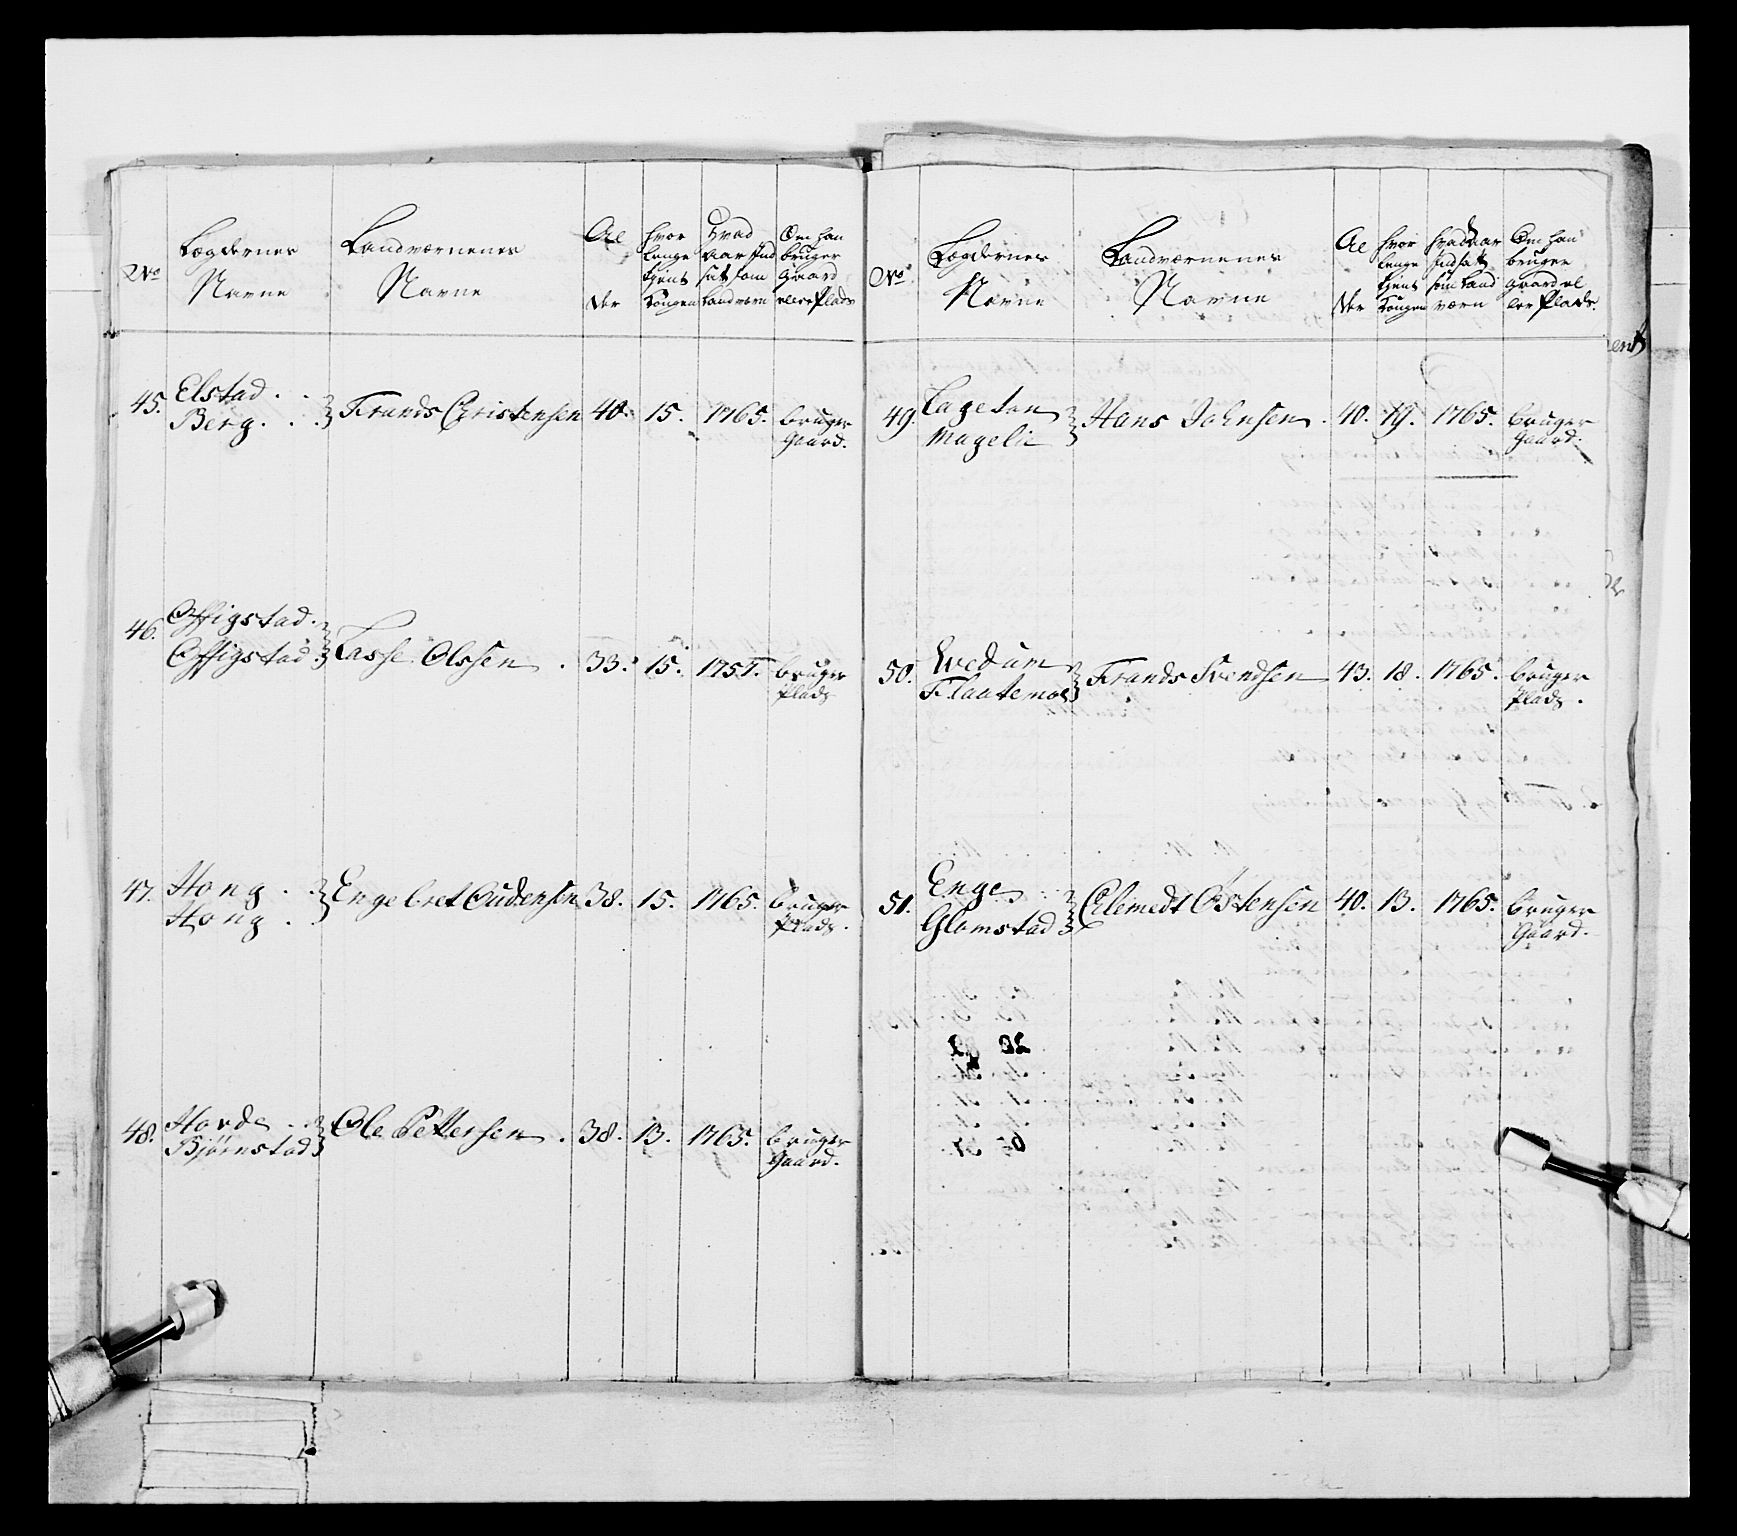 No
Lægdernes
Navne
Landværnenes
Navne
Al
der
hvor
lenge
tjent
Kongen
Hvad
Aar Ind
sat som
Landværn
Om han
bruger
Gaard
eller Plads
45.
Elstad . .
Berg . . .
Frands Christensen
40.
15.
1765.
bruger
Gaard.
46.
Offigstad .
Offigstad .
Lasse Olssen .
33.
15.
bruger
Plads
47.
Hong . .
Hong .
Engebret Oudensen
38.
15.
1765.
bruger
Plads.
48.
Hovde . .
Bjørnstad
Ole Pettersen .
38.
13.
1765.
bruger
Gaard.
No
Lægdernes
Navne
Landværnenes
Navne
Al
der
hvor
lenge
tjent
Kongen
hvad Aar
Indsat
som Land
værn
Om han
bruger
Gaard el
ler Plads.
49.
Magelie
Hans Johnsen .
40.
19.
1765.
bruger
Gaard.
50.
Wedum
Flaatemoe
Frands Svendsen
43.
18.
1765.
bruger
Plads.
51.
Enge . .
Glomstad
Clemedt Østensen
40.
13.
1765.
bruger
Gaard.
ent